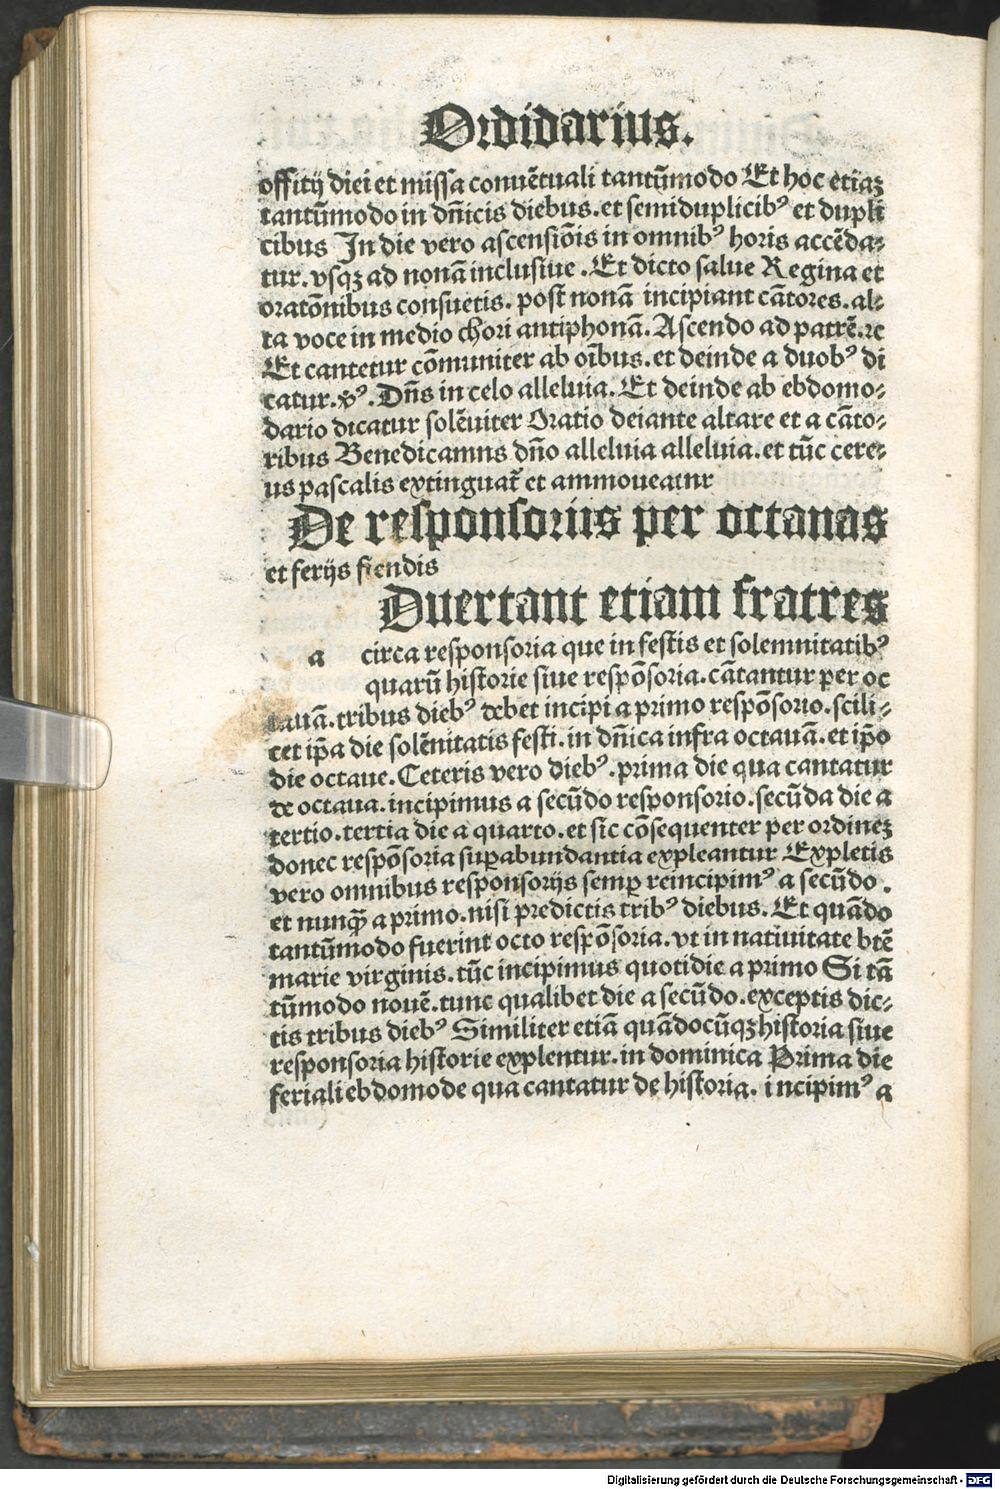 Ordidarius.
offitij diei et missa conuẽtuali tantũmodo Et hoc etiaꝫ
tantũmodo in dñicis diebus. et semiduplicibꝰ et dupli
cibus In die vero ascensiõis in omnibꝰ horis accẽda⸗
tur. vsqꝫ ad nonã inclusiue. Et dicto salue Regina et
oratõnibus consuetis. post nonã incipiant cãtores. al⸗
ta voce in medio chori antiphonã. Ascendo ad patrẽ. ⁊c
Et cantetur cõmuniter ab oĩbus. et deinde a duobꝰ di
catur. ꝟꝰ. Dñs in celo alleluia. Et deinde ab ebdomo⸗
dario dicatur solẽniter Oratio deiante altare et a cãto⸗
ribus Benedicamns dño alleluia alleluia. et tũc cere⸗
us pascalis extinguat̃ et ammoueatnr
De responsoriis per octanas
et ferijs fiendis
Duertant etiam fratres
a circa responsoria que in festis et solemnitatibꝰ
quarũ historie siue respõsoria. cãtantur per oc
tauã. tribus diebꝰ debet incipi a primo respõsorio. scili⸗
cet ip̃a die solẽnitatis festi. in dñica infra octauã. et ip̃o
die octaue. Ceteris vero diebꝰ. prima die qua cantatur
de octaua. incipimus a secũdo responsorio. secũda die a
tertio. tertia die a quarto. et sic cõsequenter per ordineꝫ
donec respõsoria suꝑabundantia expleantur Expletis
vero omnibus responsorijs semꝑ reincipimꝰ a secũdo.
et nunqᷓ a primo. nisi predictis tribꝰ diebus. Et quãdo
tantũmodo fuerint octo respõsoria. vt in natiuitate btẽ
marie virginis. tũc incipimus quotidie a primo Si tã
tũmodo nouẽ. tunc qualibet die a secũdo. exceptis dic⸗
tis tribus diebꝰ Similiter etiã quãdocũqꝫ historia siue
responsoria historie explentur. in dominica Prima die
feriali ebdomode qua cantatur de historia. incipimꝰ a
Digitalisierung gefördert durch die Deutsche Forschungsgemeinschaft - DFG